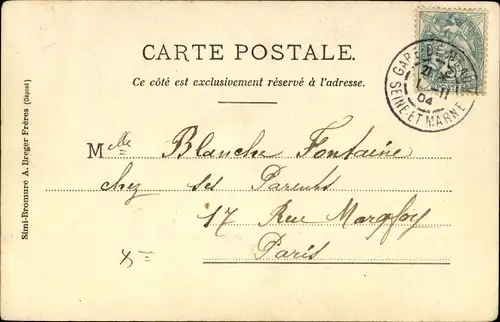 CARTE POSTALE.
Ce côté est exclusivement réservé à l'adresse.
GARE DE
SEINE-ET-MARNE
11
04
Mlle Blanche Fontaine
chez ses Parents
17 Rue Margfoy
Paris
Xe
Simi-Bromure A. Breger Frères (Déposé)